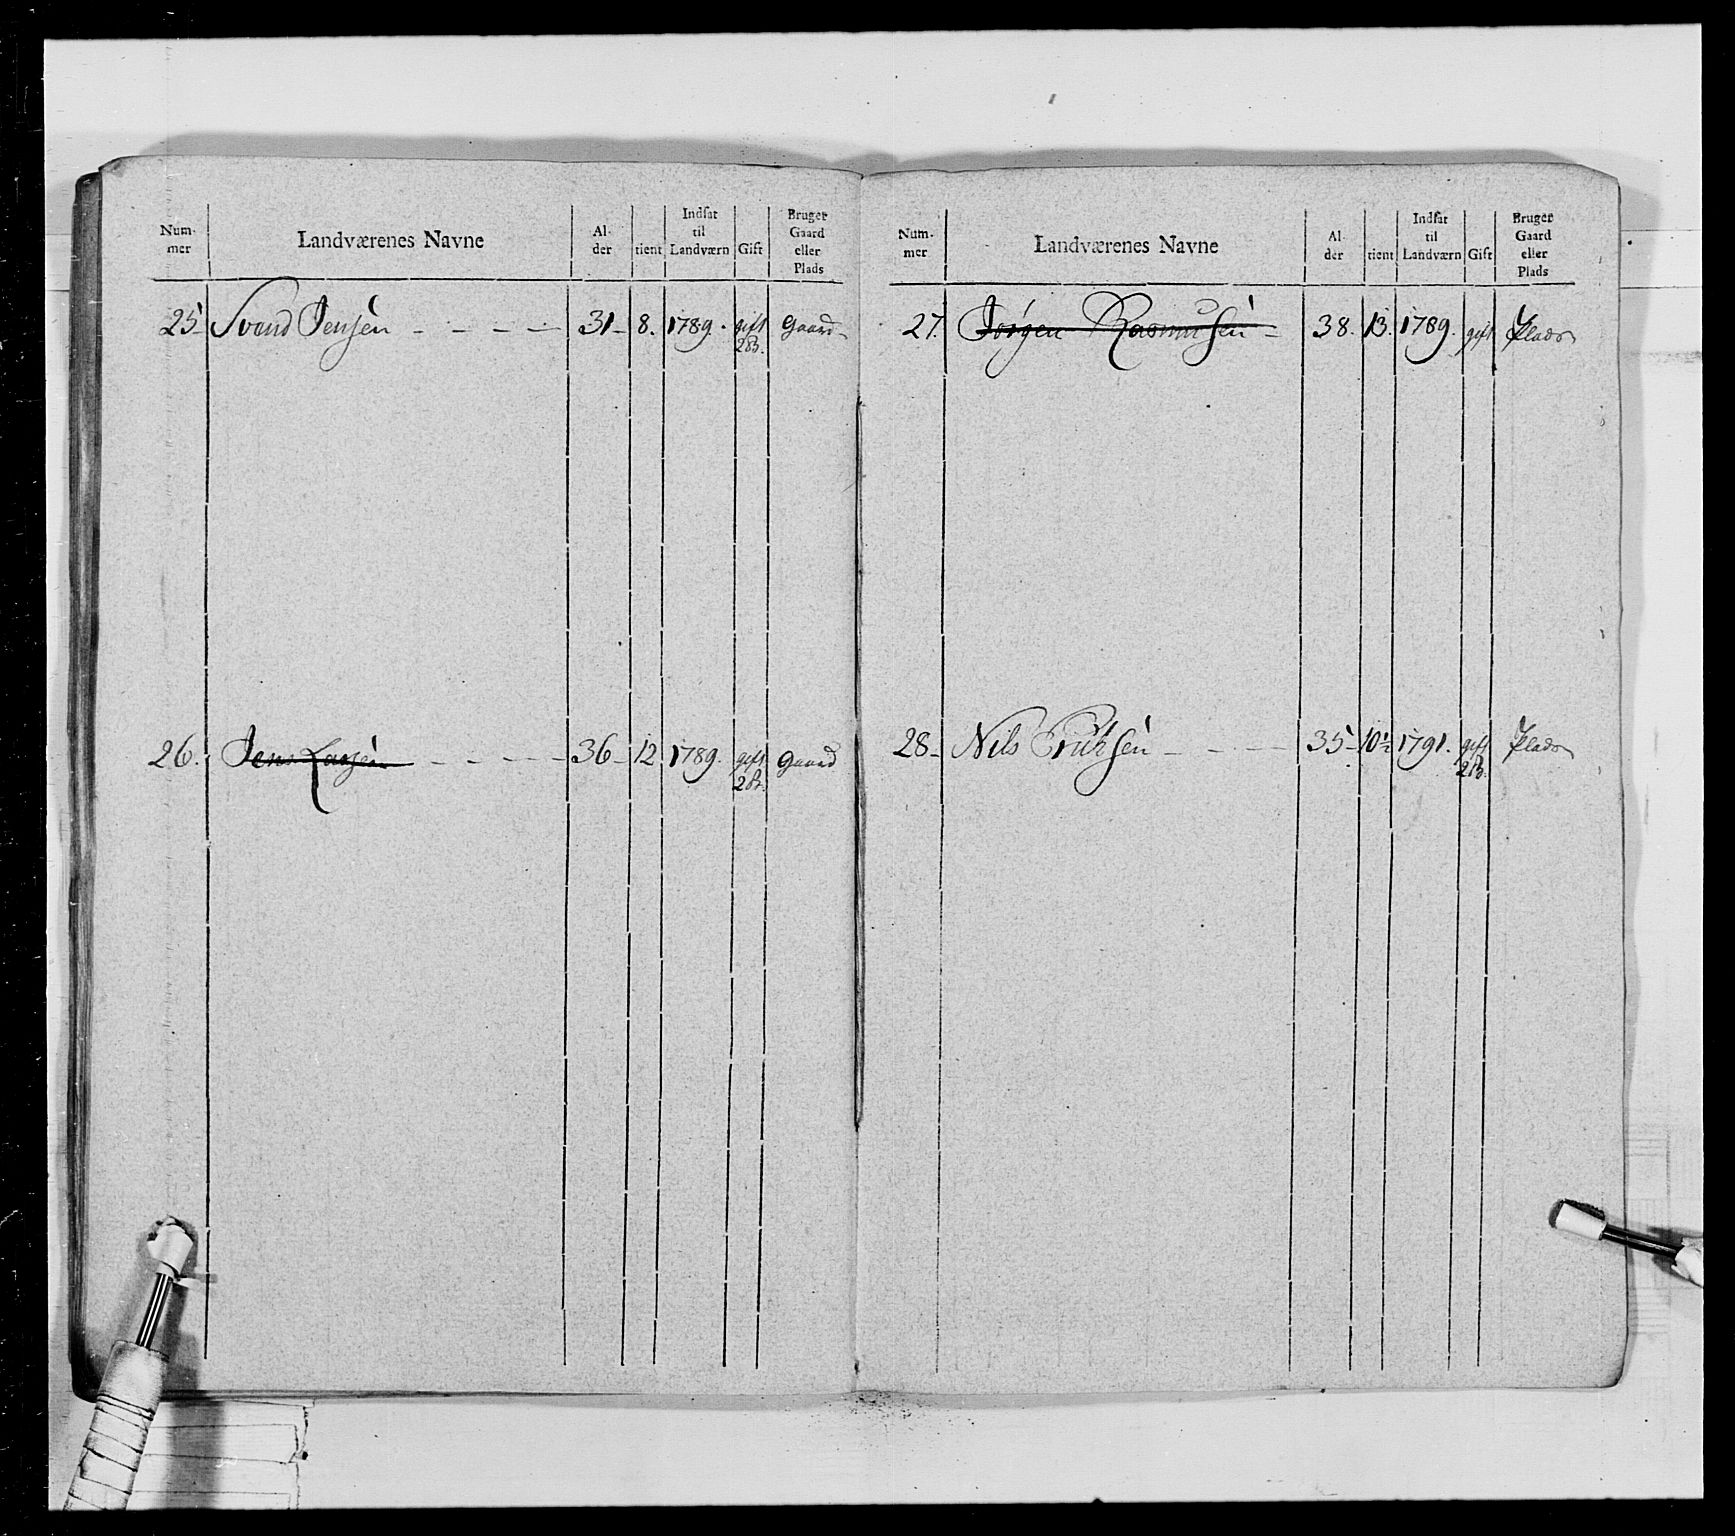 Num- mer Landværenes Navne Al- der tient Indsat til Landværn Gift Bruger Gaard eller Plads
25 Svend Jensen - - - - - 31 - 8. 1789. gift 2B. Gaard
26. Jens Larsen - - - - - 36 - 12 1789. gift 2B. Gaard
Num- mer Landværenes Navne Al- der tient Indsat til Landværn Gift Bruger Gaard eller Plads
27. Jørgen Rasmusen - 38. 13. 1789. gift Plads
28 - Nils Eriksen - - - - 35 - 10½ 1791. gift 2B. Plads